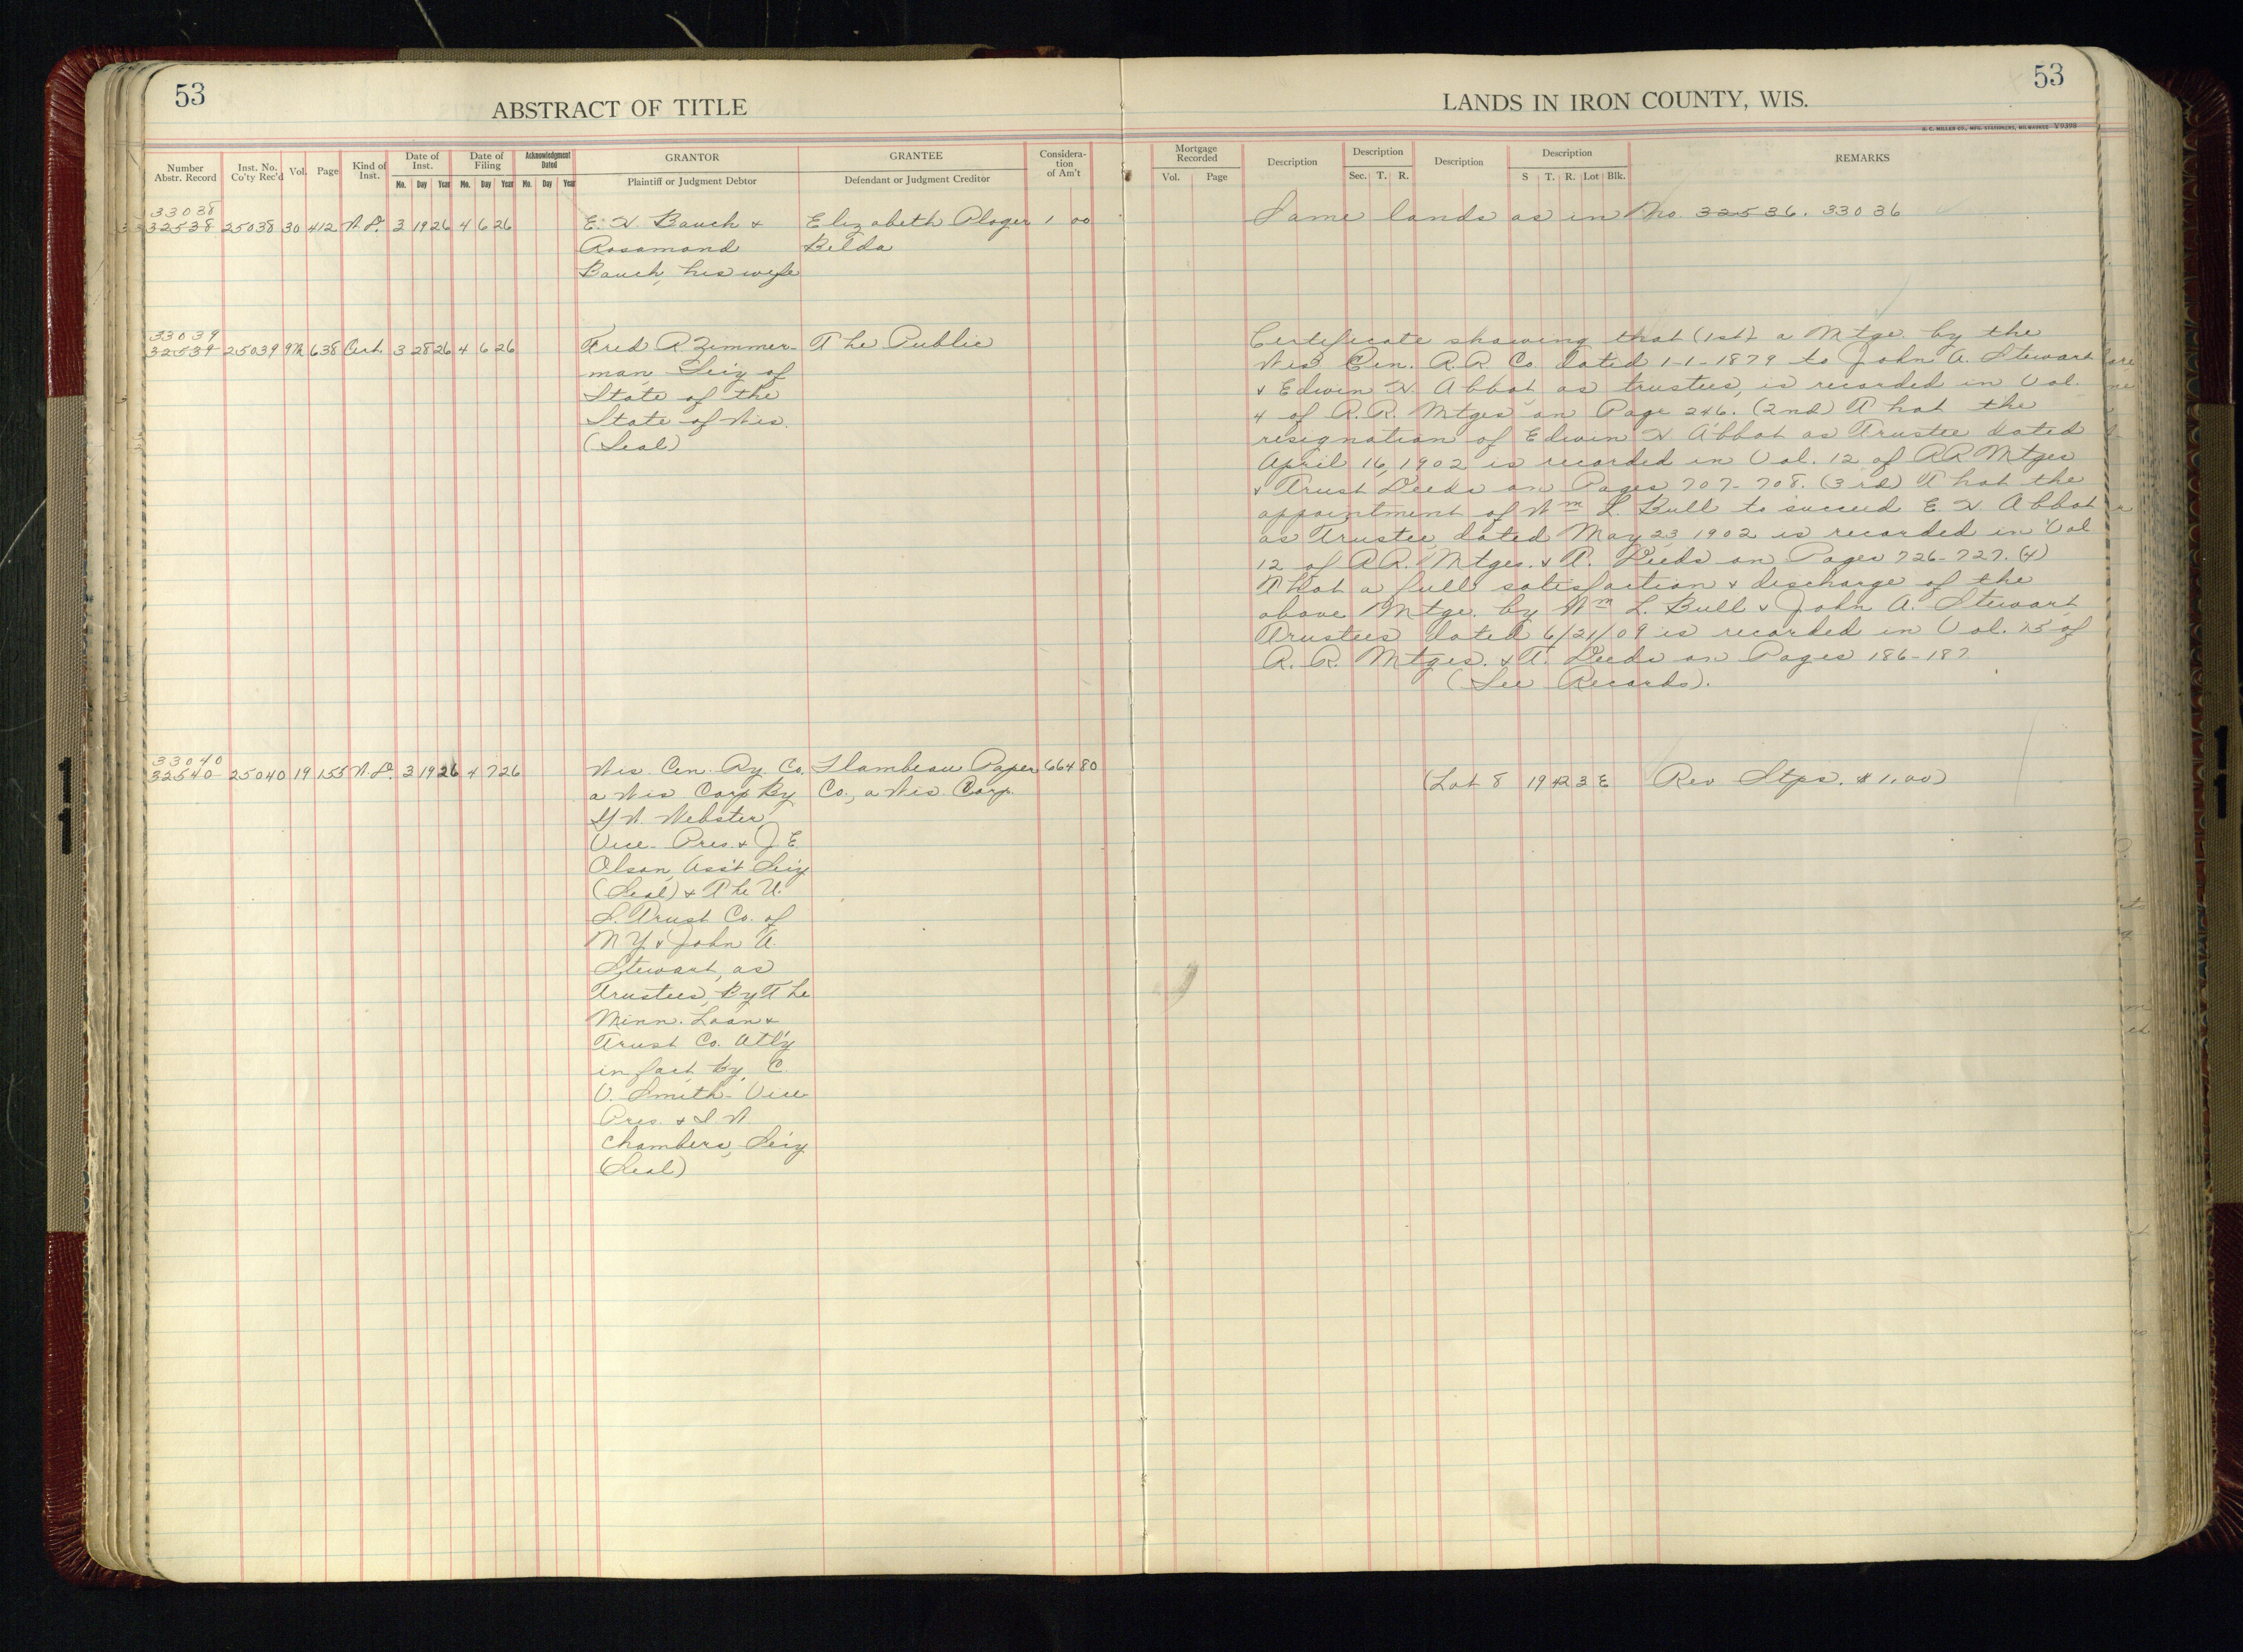 53
ABSTRACT OF TITLE
LANDS IN IRON COUNTY, WIS.
53
H. C. MILLER CO., MFG. STATIONERS, MILWAUKEE V9398
Number Abstr. Record
Inst. No. Co'ty Rec'd
Vol.
Page
Kind of Inst.
Date of Inst.
Mo. Day Year
Date of Filing
Mo. Day Year
Acknowledgment Dated
Mo. Day Year
GRANTOR
Plaintiff or Judgment Debtor
GRANTEE
Defendant or Judgment Creditor
Consideration of Am't
Mortgage Recorded
Vol. Page
Description
Description
Sec. T. R.
Description
Description
S T. R. Lot Blk.
REMARKS
33038
32538 25038 30 412 W.D. 3 19 26 4 6 26 E. H. Bauch & Elizabeth Ploger 1 00 Same lands as in No. 32536. 33036
Rosamond Belda
Bauch, his wife
33039
32539 25039 9M 638 Cert. 3 28 26 4 6 26 Fred R. Zimmer- The Public
man, Sec'y of
State of the
State of Wis.
(Seal)
Certificate showing that (1st) a Mtge. by the
Wis Cen. R.R Co. dated 1-1-1879 to John A. Stewart
& Edwin H. Abbot, as trustees, is recorded in Vol.
4 of R.R. Mtges on Page 246. (2nd) That the
resignation of Edwin H Abbot as Trustee dated
April 16, 1902 is recorded in Vol. 12 of RR Mtges
& Trust Deeds on Pages 707-708. (3rd) That the
appointment of Wm L. Bull to succeed E H Abbot
as Trustee, dated May 23, 1902 is recorded in Vol
12 of RR. Mtges. & T. Deeds on Pages 726-727. (4)
That a full satisfaction & discharge of the
above Mtge. by Wm L. Bull & John A. Stewart
Trustees dated 6/21/09 is recorded in Vol. of
R. R. Mtges. & T. Deeds on Pages 186-187
(See Records).
33040
32540 25040 19 155 W.D. 3 19 26 4 7 26 Wis. Cen. Ry. Co. Flambeau Paper 664 80 (Lot 8 19 42 3 E Rev Stps. $1.00)
a Wis Corp By Co., a Wis. Corp.
G W. Webster
Vice-Pres & J. E.
Olson, Ass't Sec'y
(Seal) & The U.
S. Trust Co. of
N Y. & John A.
Stewart, as
Trustees, By The
Minn. Loan &
Trust Co. Att'y
in fact, by, C.
V. Smith-Vice
Pres. & I. W.
Chambers, Sec'y
(Seal)